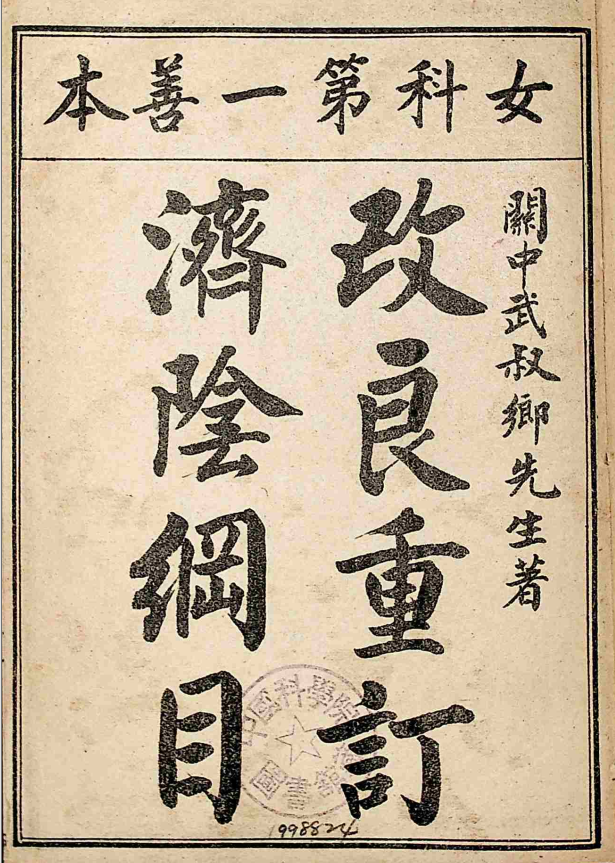 女科第一善本
關中武叔卿先生著
改良重訂
濟陰綱目
中國科學院
1998824